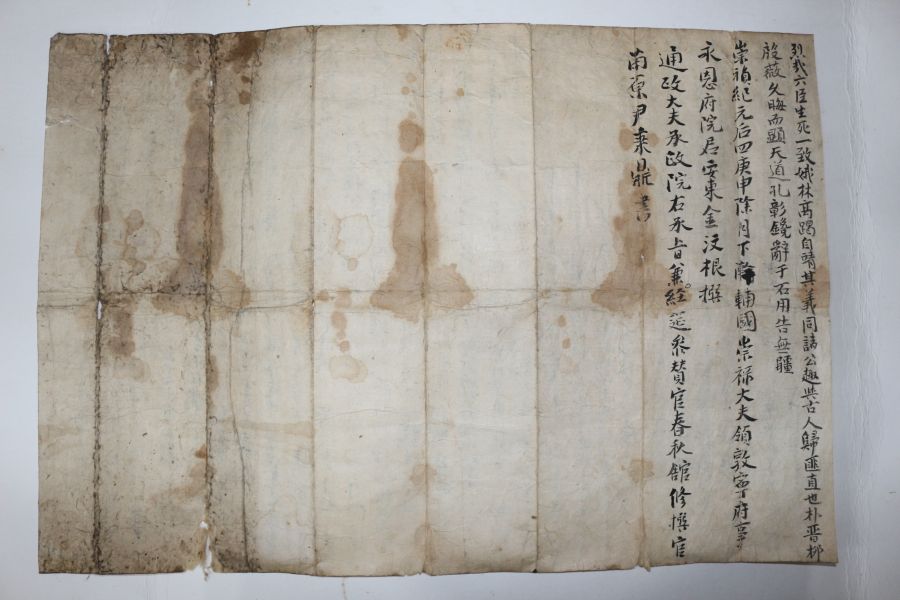 烈哉六臣生死一致 林高蹈自靖其義同諸公趣與古人歸匪直也朴晋柳
殷薇久晦而顯天道孔彰鑱辭于石用告無疆
崇禎紀元后四庚申除月下 輔國崇祿大夫領敦寧府事
永恩府院君安東金汶根撰
通政大夫承政院右承旨兼經筵參贊官春秋館修撰官
尹秉鼎書